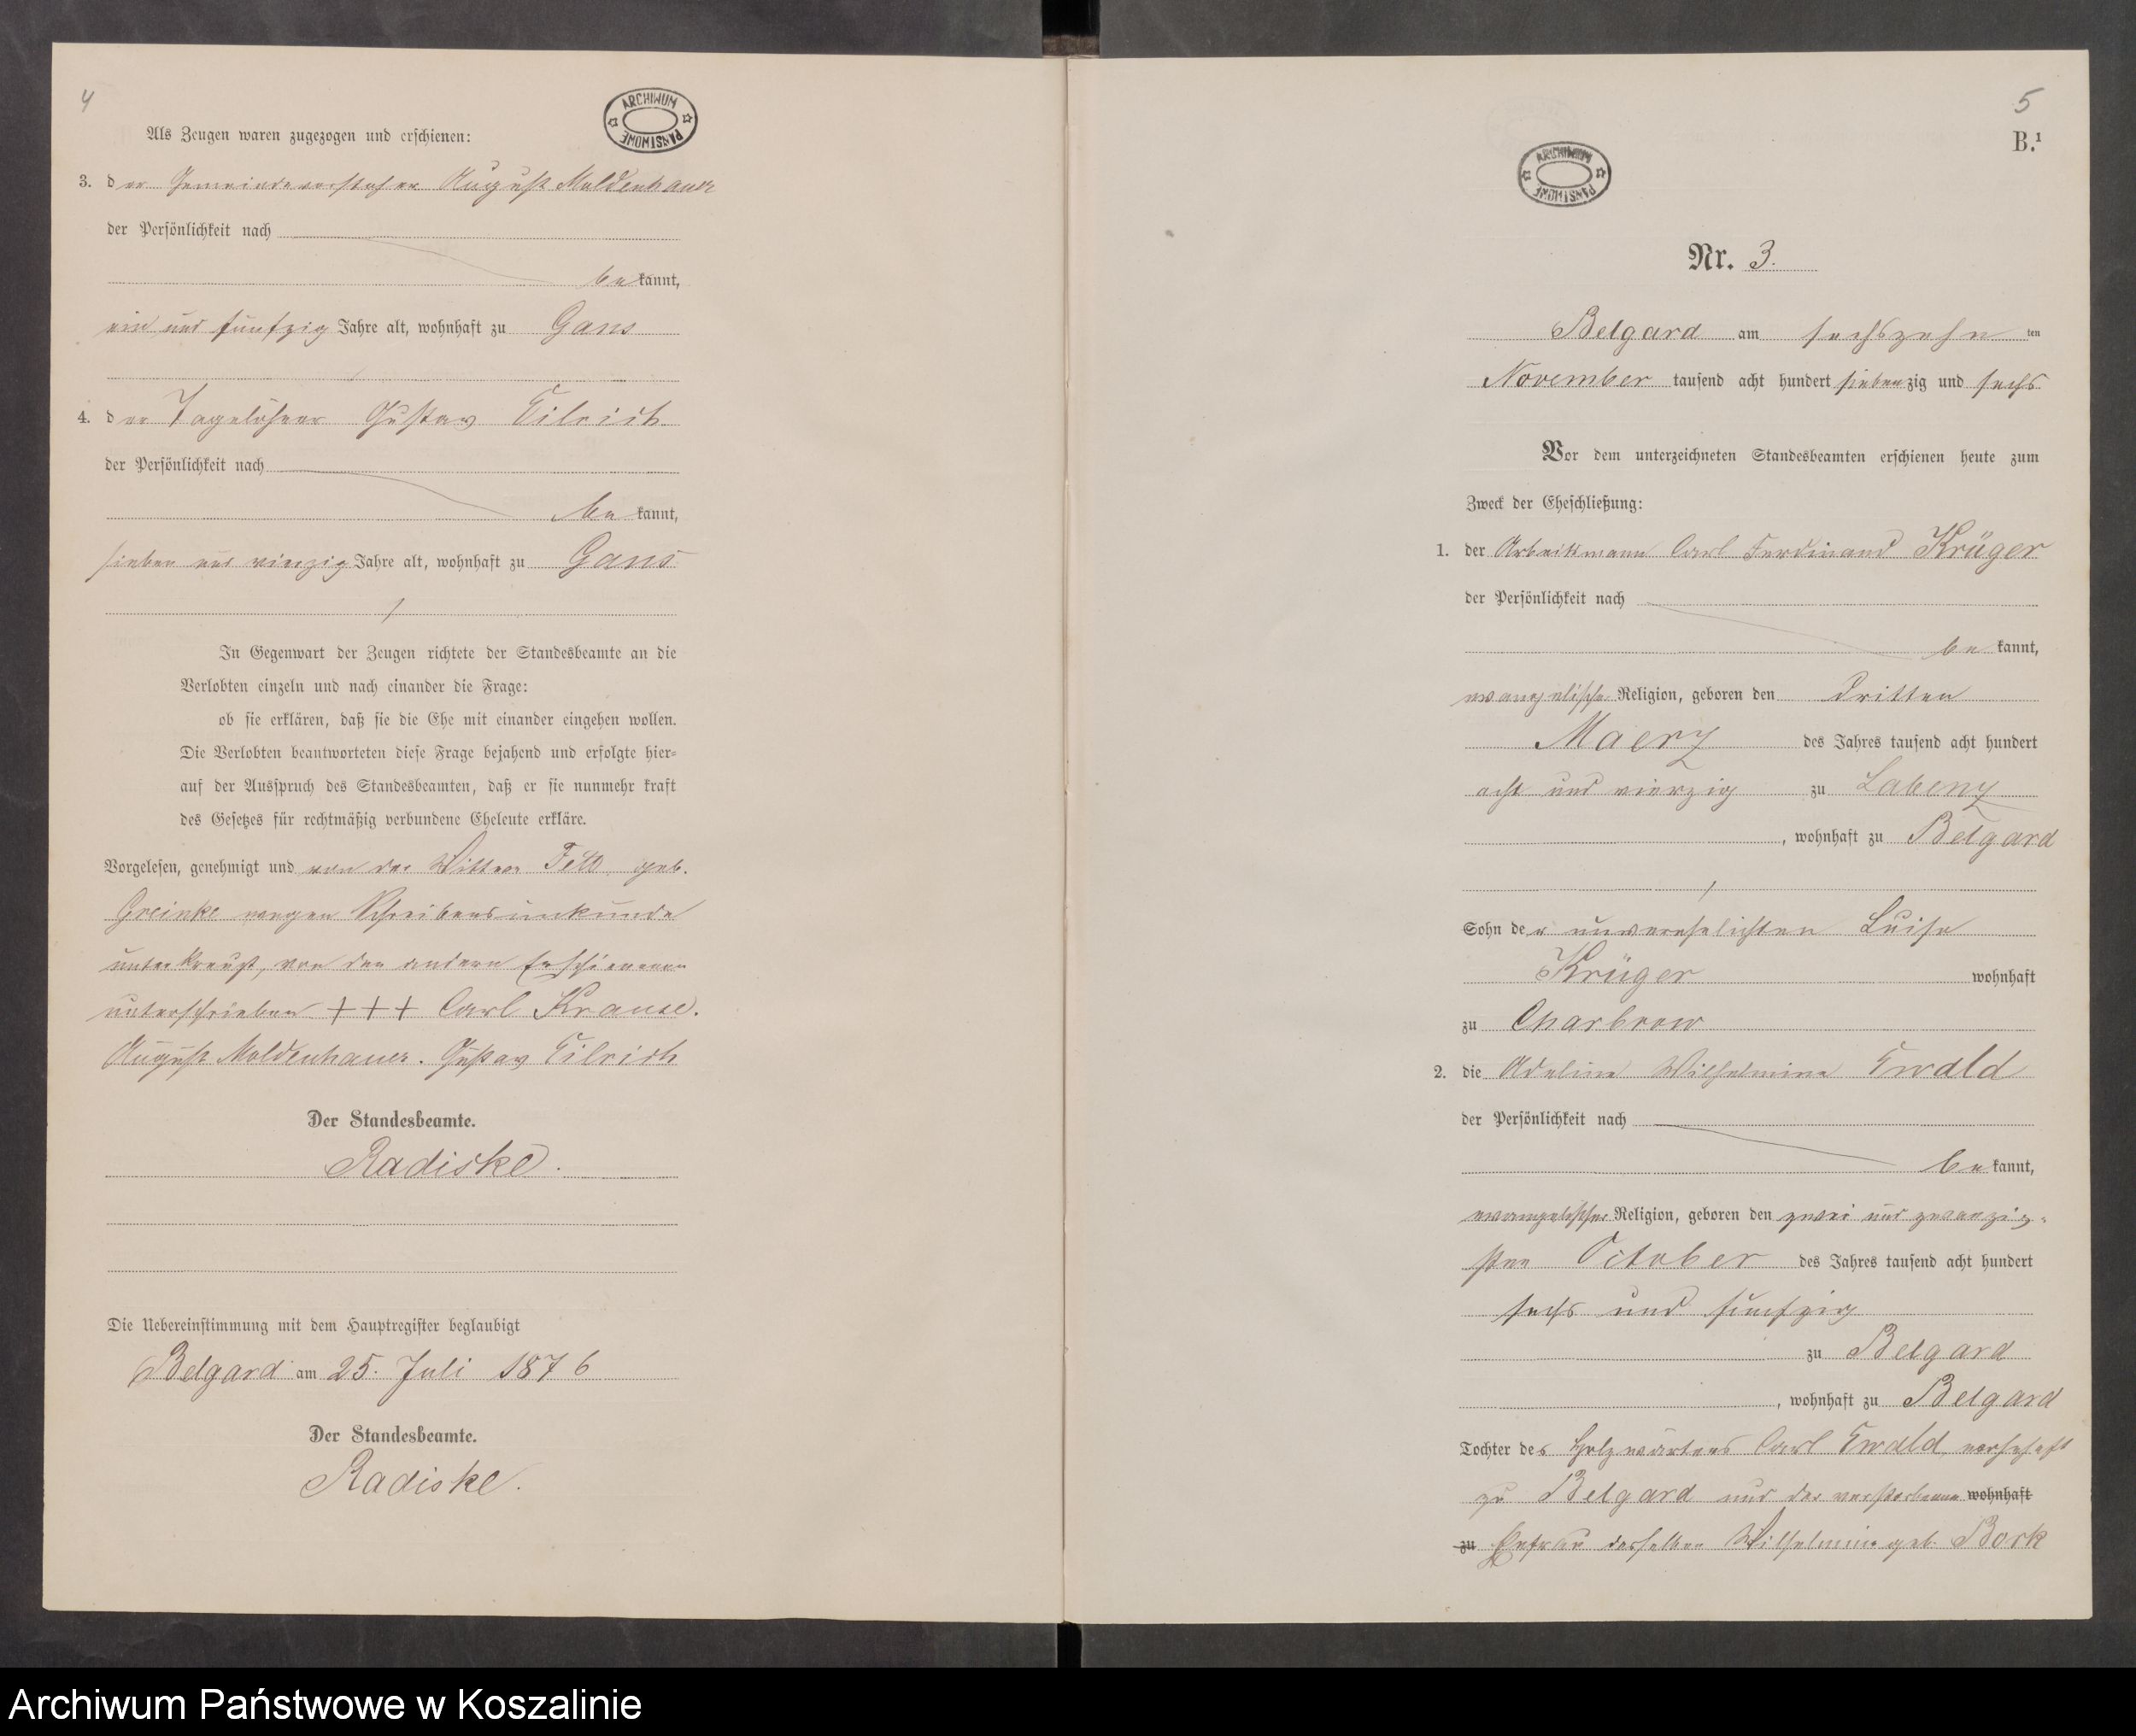 4
ARCHIWUM PAŃSTWOWE
Als Zeugen waren zugezogen und erschienen:
3. der Gemeindevorsteher August Moldenhauer
der Persönlichkeit nach
bekannt,
ein und funfzig Jahre alt, wohnhaft zu Gans
4. der Tagelöhner Gustav Eilrich
der Persönlichkeit nach
bekannt,
sieben und vierzig Jahre alt, wohnhaft zu Gans
In Gegenwart der Zeugen richtete der Standesbeamte an die
Verlobten einzeln und nach einander die Frage:
ob sie erklären, daß sie die Ehe mit einander eingehen wollen.
Die Verlobten beantworteten diese Frage bejahend und erfolgte hier=
auf der Ausspruch des Standesbeamten, daß er sie nunmehr kraft
des Gesetzes für rechtmäßig verbundene Eheleute erkläre.
Vorgelesen, genehmigt und von der Wittwe geb.
Greinke wegen Schreibensunkunde
unterkreuzt, von den andern Erschienenen
unterschrieben +++ Carl Krause.
August Moldenhauer. Gustav Eilrich
Der Standesbeamte.
Radiske.
Die Uebereinstimmung mit dem Hauptregister beglaubigt
Belgard am 25. Juli 1876
Der Standesbeamte.
Radiske.
5
B.¹
ARCHIWUM PAŃSTWOWE
Nr. 3.
Belgard am sechszehnten
November tausend acht hundert siebenzig und sechs
Vor dem unterzeichneten Standesbeamten erschienen heute zum
Zweck der Eheschließung:
1. der Arbeitsmann Carl Ferdinand Krüger
der Persönlichkeit nach
bekannt,
evangelischer Religion, geboren den dritten
Maerz des Jahres tausend acht hundert
acht und vierzig zu Labenz
, wohnhaft zu Belgard
Sohn der unverehelichten Luise
Krüger wohnhaft
zu Charbrow
2. die Adeline Wilhelmine Ewald
der Persönlichkeit nach
bekannt,
evangelischer Religion, geboren den zwei und zwanzig-
sten October des Jahres tausend acht hundert
sechs und funfzig
zu Belgard
, wohnhaft zu Belgard
Tochter des Holzwärters Carl Ewald, wohnhaft
zu Belgard und der verstorbenen wohnhaft
zu Ehefrau desselben Wilhelmine geb. Bork
Archiwum Państwowe w Koszalinie